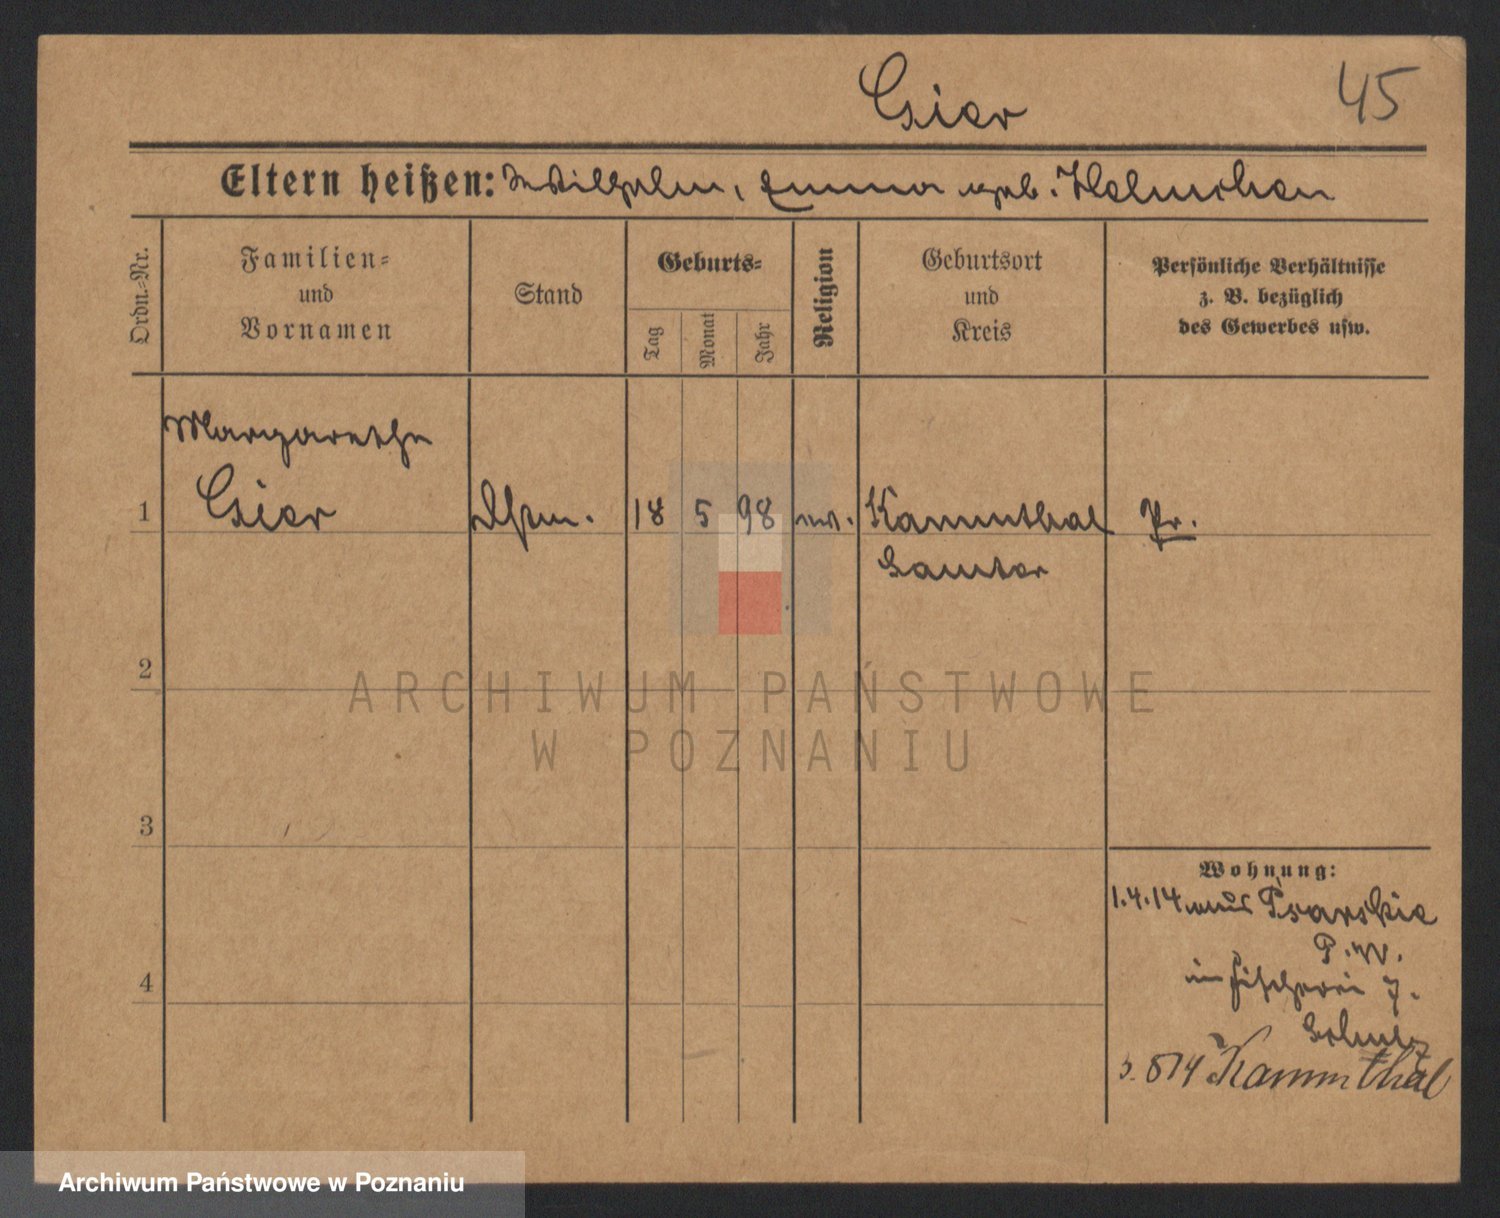 Gier 45
Eltern heißen: Wilhelm, Emma geb. Helmchen
Ordn.-Nr.
Familien-
und
Vornamen
Stand
Geburts-
Tag
Monat
Jahr
Religion
Geburtsort
und
Kreis
Persönliche Verhältnisse
z. B. bezüglich
des Gewerbes usw.
Margarethe
1 Gier 18 5 98 ev. Kammthal Pr.
Samter
2
ARCHIWUM PAŃSTWOWE
W POZNANIU
3
Wohnung:
1.4.14 aus Psarskie
P.W.
in Fischerei 7.
4
Schulz
3. 8 14 Kammthal
Archiwum Państwowe w Poznaniu